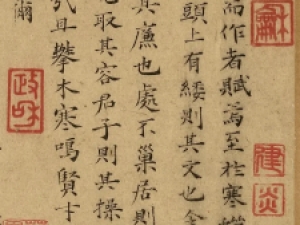 作者賦焉至於寒
頭上有緌則其文也含
其廉也處不巢居則
取其容君子則其操
且攀木寒鳴賢才
爾
龢
建炎
政和